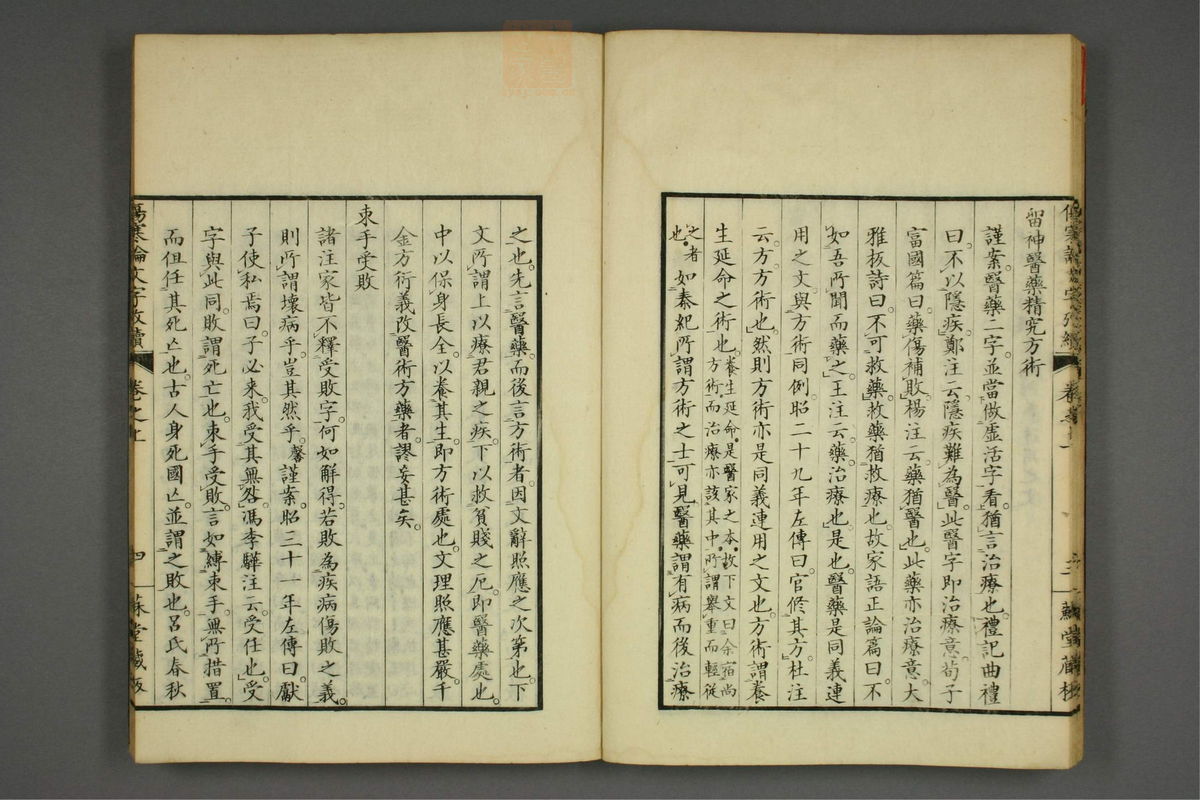 留神醫藥精究方術
謹案醫藥二字並當做虛活字看猶言治療也禮記曲禮
曰不以隱疾鄭注云隱疾難為醫此醫字即治療意荀子
富國篇曰藥傷補敗楊注云藥猶醫也此藥亦治療意大
雅板詩曰不可救藥救藥猶救療也故家語正論篇曰不
如吾所聞而藥之王注云藥治療也是也醫藥是同義連
用之文與方術同例昭二十九年左傳曰官脩其方杜注
云方方術也然則方術亦是同義連用之文也方術謂養
生延命之術也養生延命是醫家之本故下文曰余宿尚
方術而治療亦該其中所謂舉重而輕從
之者也如秦紀所謂方術之士可見醫藥謂有病而後治療
之也先言醫藥而後言方術者因文辭照應之次第也下
文所謂上以療君親之疾下以救貧賤之厄即醫藥處也
中以保身長全以養其生即方術處也文理照應甚嚴千
金方衍義改醫術方藥者謬妄甚矣
束手受敗
諸注家皆不釋受敗字何如解得若敗為疾病傷敗之義
則所謂壞病乎豈其然乎馨謹案昭三十一年左傳曰獻
子使私焉曰子必來我受其無咎馮李驊注云受任也受
字與此同敗謂死亡也束手受敗言如縛束手無所措置
而但任其死亡也古人身死國亡並謂之敗也呂氏春秋
傷寒論文字攷續
卷之上
四
蘇堂藏版